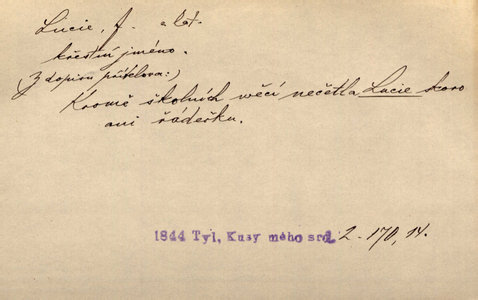 Lucie, f. z lat.
křestní jméno.
(Z dopisu přítelova:)
Kromě školních věcí nečetla Lucie skoro
ani řádečku.
1844 Tyl, Kusy mého srd. 2 - 170, 14.